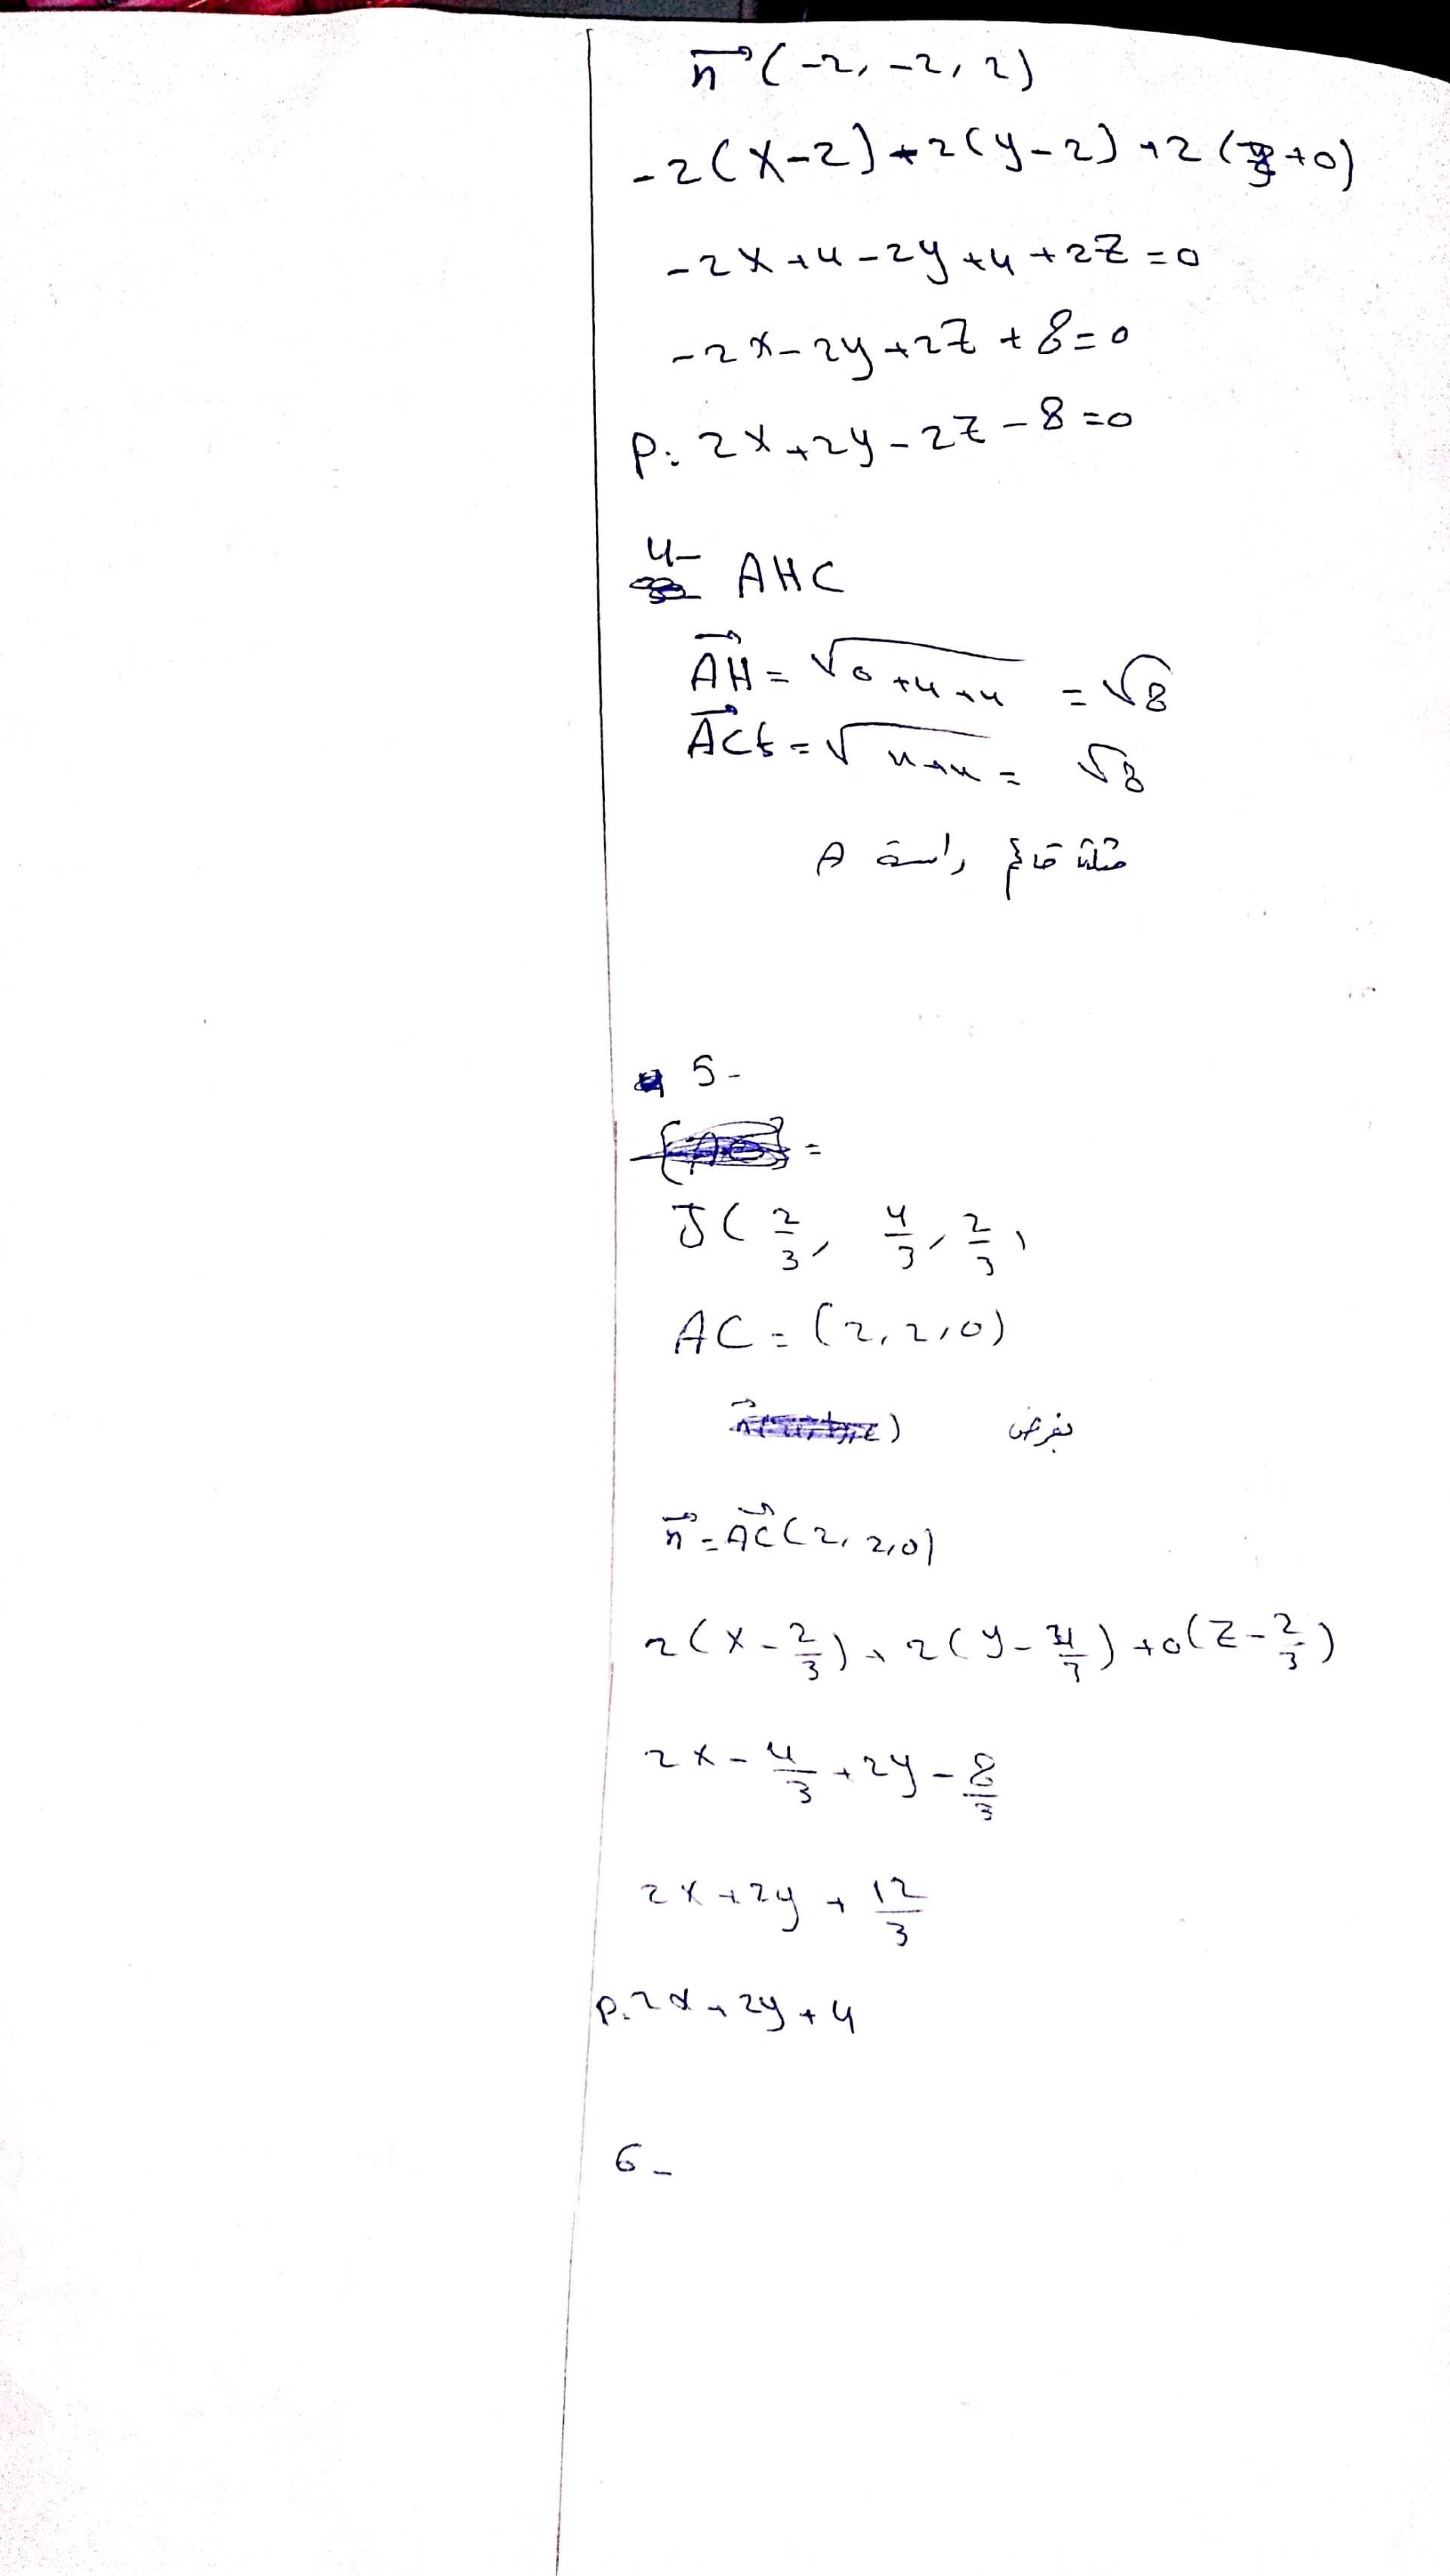 n⃗ (-2, -2, 2)
-2(x-2)+2(y-2)+2(z+0)
-2x+4-2y+4+2z=0
-2x-2y+2z+8=0
P: 2x+2y-2z-8=0
4-
AHC
AH⃗ = √(0+4+4) = √8
AC⃗ = √(4+4) = √8
مثلث قائم راسه A
5-
=
J(2/3, 4/3, 2/3)
AC = (2, 2, 0)
بفرض
n⃗ = AC⃗ (2, 2, 0)
2(x-2/3)+2(y-4/3)+0(z-2/3)
2x-4/3+2y-8/3
2x+2y+12/3
P: 2x+2y+4
6-